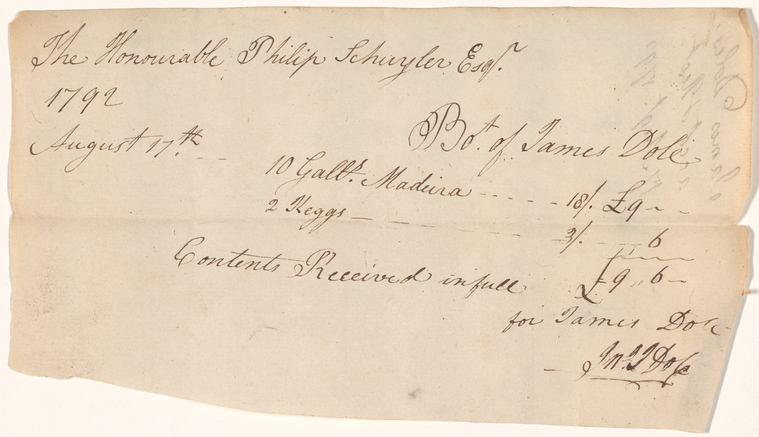 The Honourable Philip Schuyler Esqr.
1792
August 17th. Bot. of James Dole
10 Galls. Madeira 18/. £9 - -
2 Keggs 3/. 6
Contents Received in full £9 „ 6 -
for James Dole
Jno. J Dole